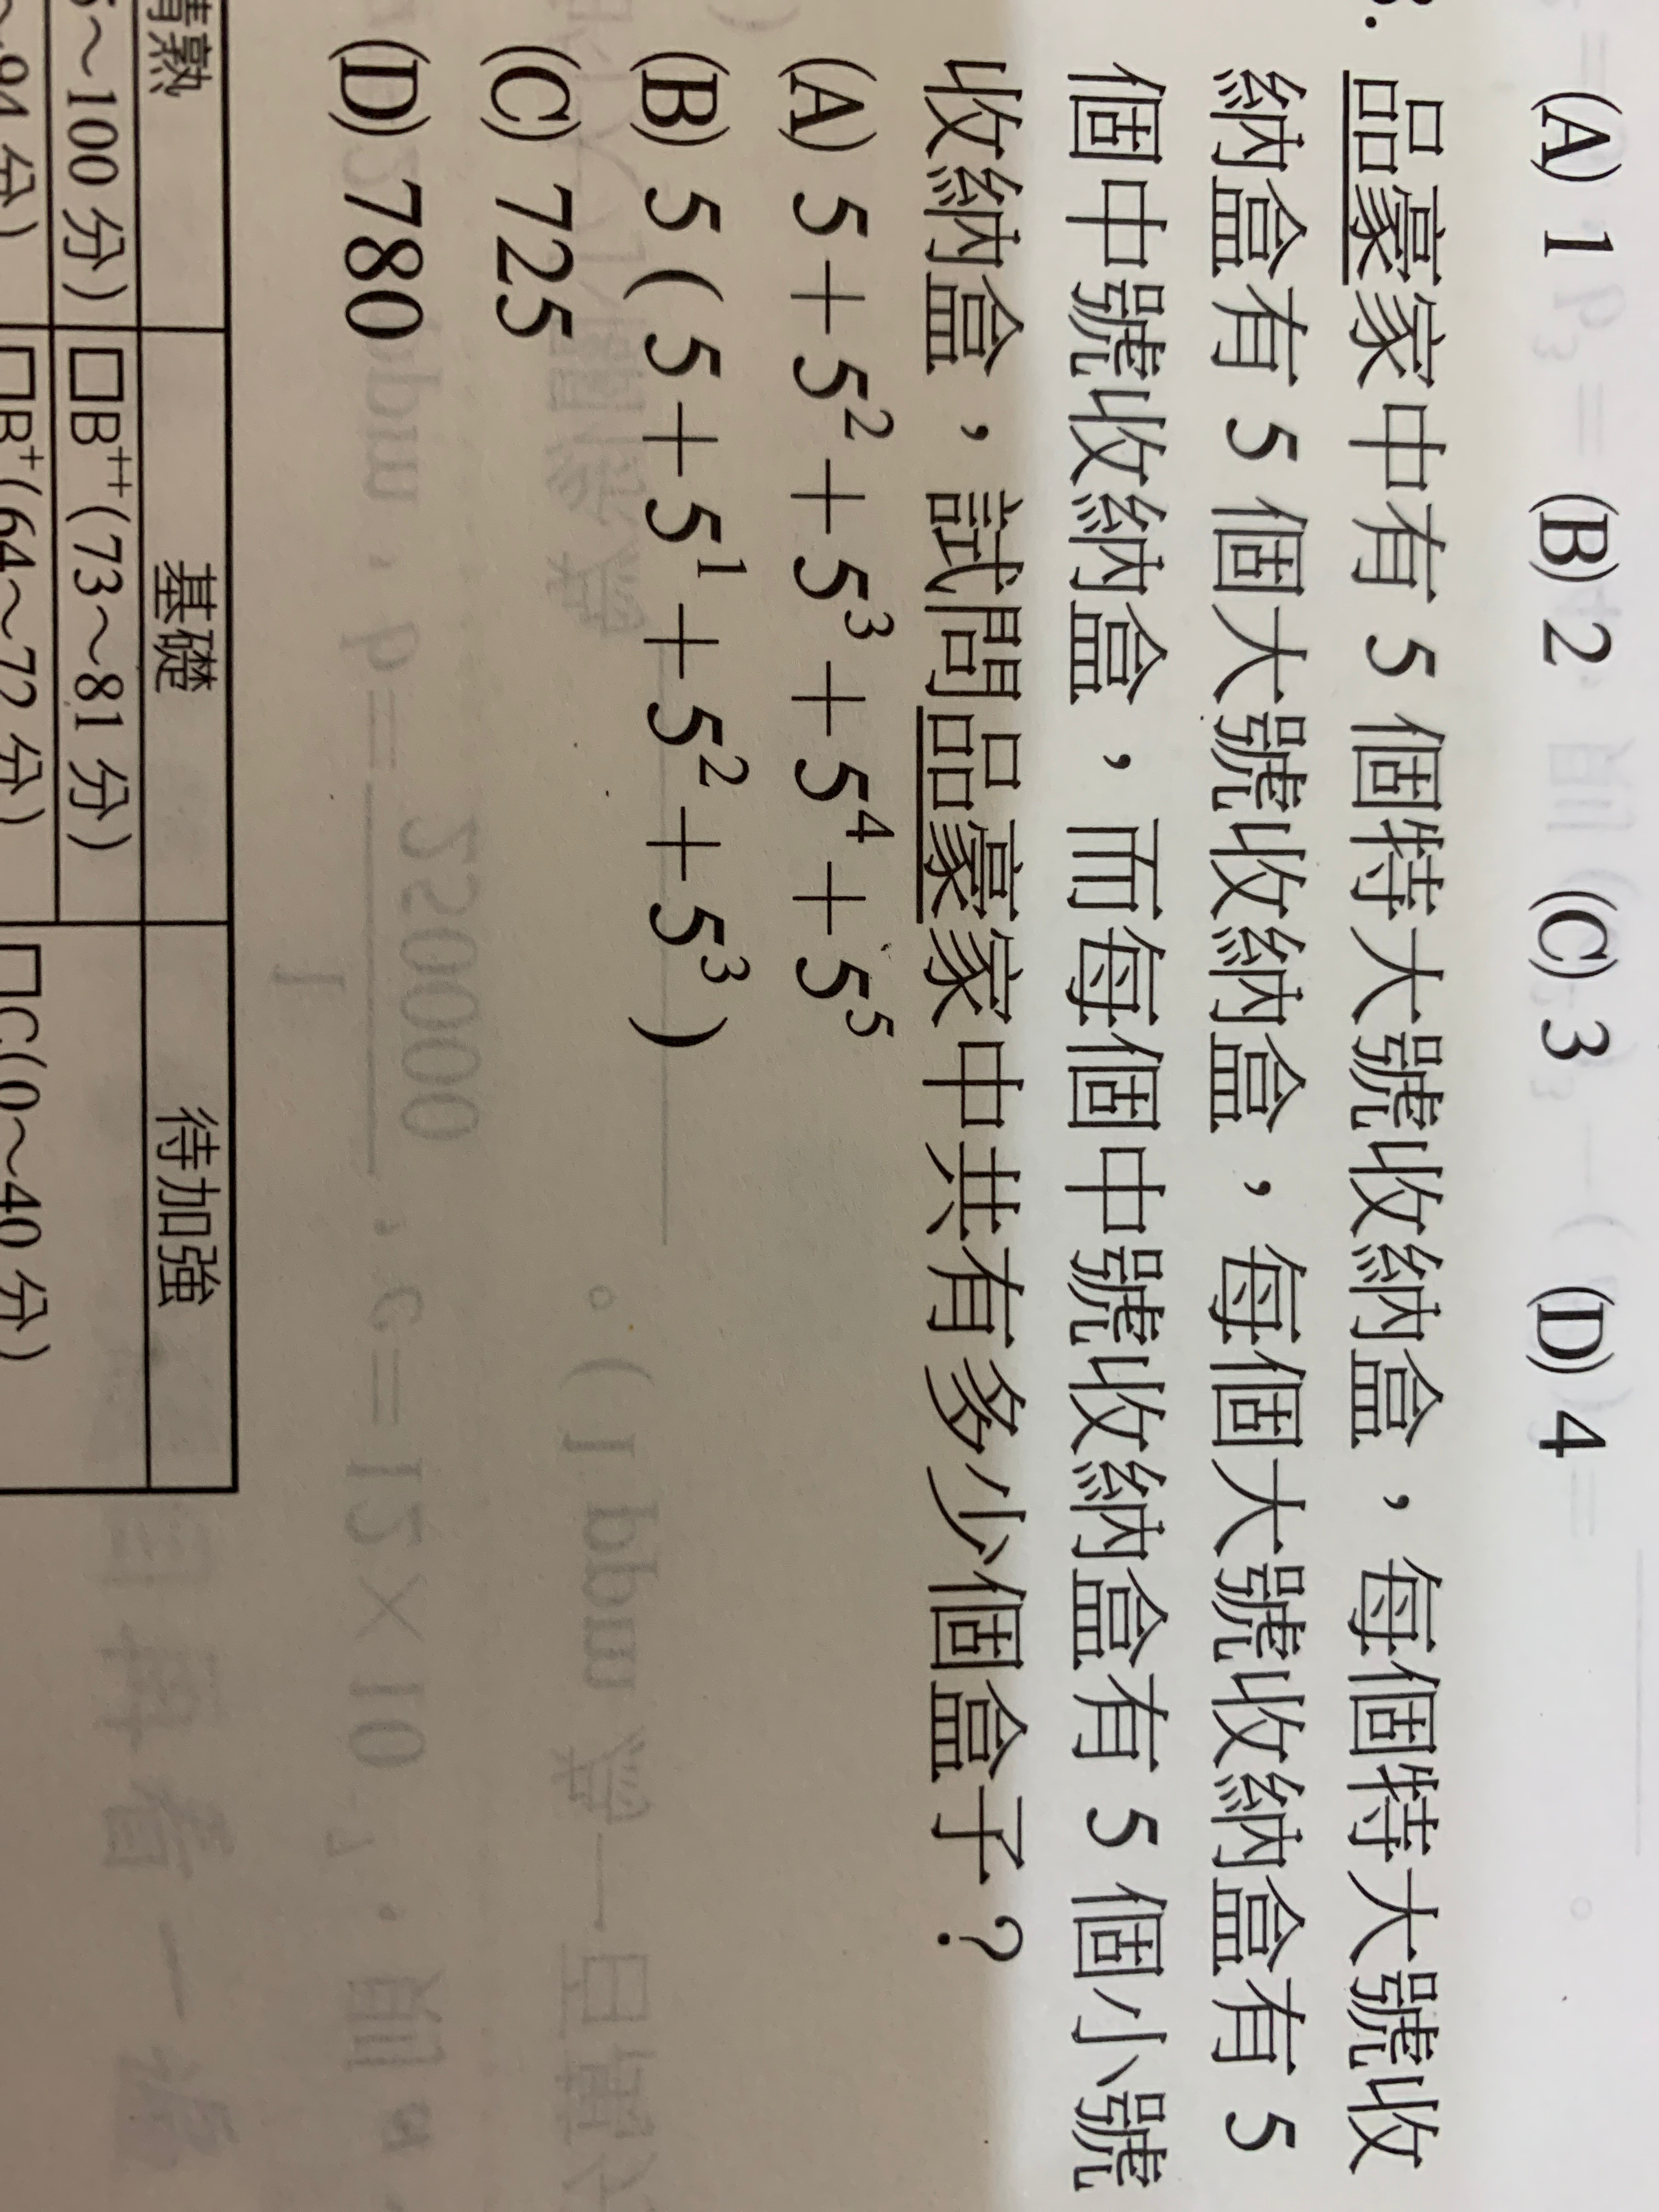 (A) 1 (B) 2 (C) 3 (D) 4
品豪家中有 5 個特大號收納盒，每個特大號收
納盒有 5 個大號收納盒，每個大號收納盒有 5
個中號收納盒，而每個中號收納盒有 5 個小號
收納盒，試問品豪家中共有多少個盒子？
(A) 5＋5²＋5³＋5⁴＋5⁵
(B) 5（5＋5¹＋5²＋5³）
(C) 725
(D) 780
精熟 基礎 待加強
～100 分） □B⁺⁺（73～81 分）
～94 分） □B⁺（64～72 分） □C（0～40 分）